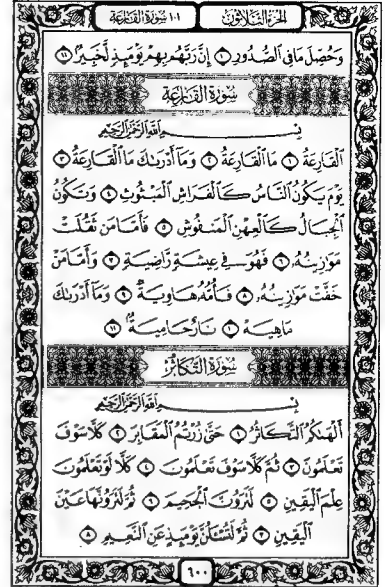 الجزء الثلاثون ١٠١ سورة القارعة
وَحُصِّلَ مَا فِي ٱلصُّدُورِ ١٠ إِنَّ رَبَّهُم بِهِمْ يَوْمَئِذٍ لَّخَبِيرٌ ١١
سُورَةُ القَارِعَةِ
بِسْمِ ٱللَّهِ ٱلرَّحْمَٰنِ ٱلرَّحِيمِ
ٱلْقَارِعَةُ ١ مَا ٱلْقَارِعَةُ ٢ وَمَآ أَدْرَىٰكَ مَا ٱلْقَارِعَةُ ٣
يَوْمَ يَكُونُ ٱلنَّاسُ كَٱلْفَرَاشِ ٱلْمَبْثُوثِ ٤ وَتَكُونُ
ٱلْجِبَالُ كَٱلْعِهْنِ ٱلْمَنفُوشِ ٥ فَأَمَّا مَن ثَقُلَتْ
مَوَٰزِينُهُۥ ٦ فَهُوَ فِي عِيشَةٍ رَّاضِيَةٍ ٧ وَأَمَّا مَنْ
خَفَّتْ مَوَٰزِينُهُۥ ٨ فَأُمُّهُۥ هَاوِيَةٌ ٩ وَمَآ أَدْرَىٰكَ
مَا هِيَهْ ١٠ نَارٌ حَامِيَةٌۢ ١١
سُورَةُ التَّكَاثُرِ
بِسْمِ ٱللَّهِ ٱلرَّحْمَٰنِ ٱلرَّحِيمِ
أَلْهَىٰكُمُ ٱلتَّكَاثُرُ ١ حَتَّىٰ زُرْتُمُ ٱلْمَقَابِرَ ٢ كَلَّا سَوْفَ
تَعْلَمُونَ ٣ ثُمَّ كَلَّا سَوْفَ تَعْلَمُونَ ٤ كَلَّا لَوْ تَعْلَمُونَ
عِلْمَ ٱلْيَقِينِ ٥ لَتَرَوُنَّ ٱلْجَحِيمَ ٦ ثُمَّ لَتَرَوُنَّهَا عَيْنَ
ٱلْيَقِينِ ٧ ثُمَّ لَتُسْـَٔلُنَّ يَوْمَئِذٍ عَنِ ٱلنَّعِيمِ ٨
٦٠٠